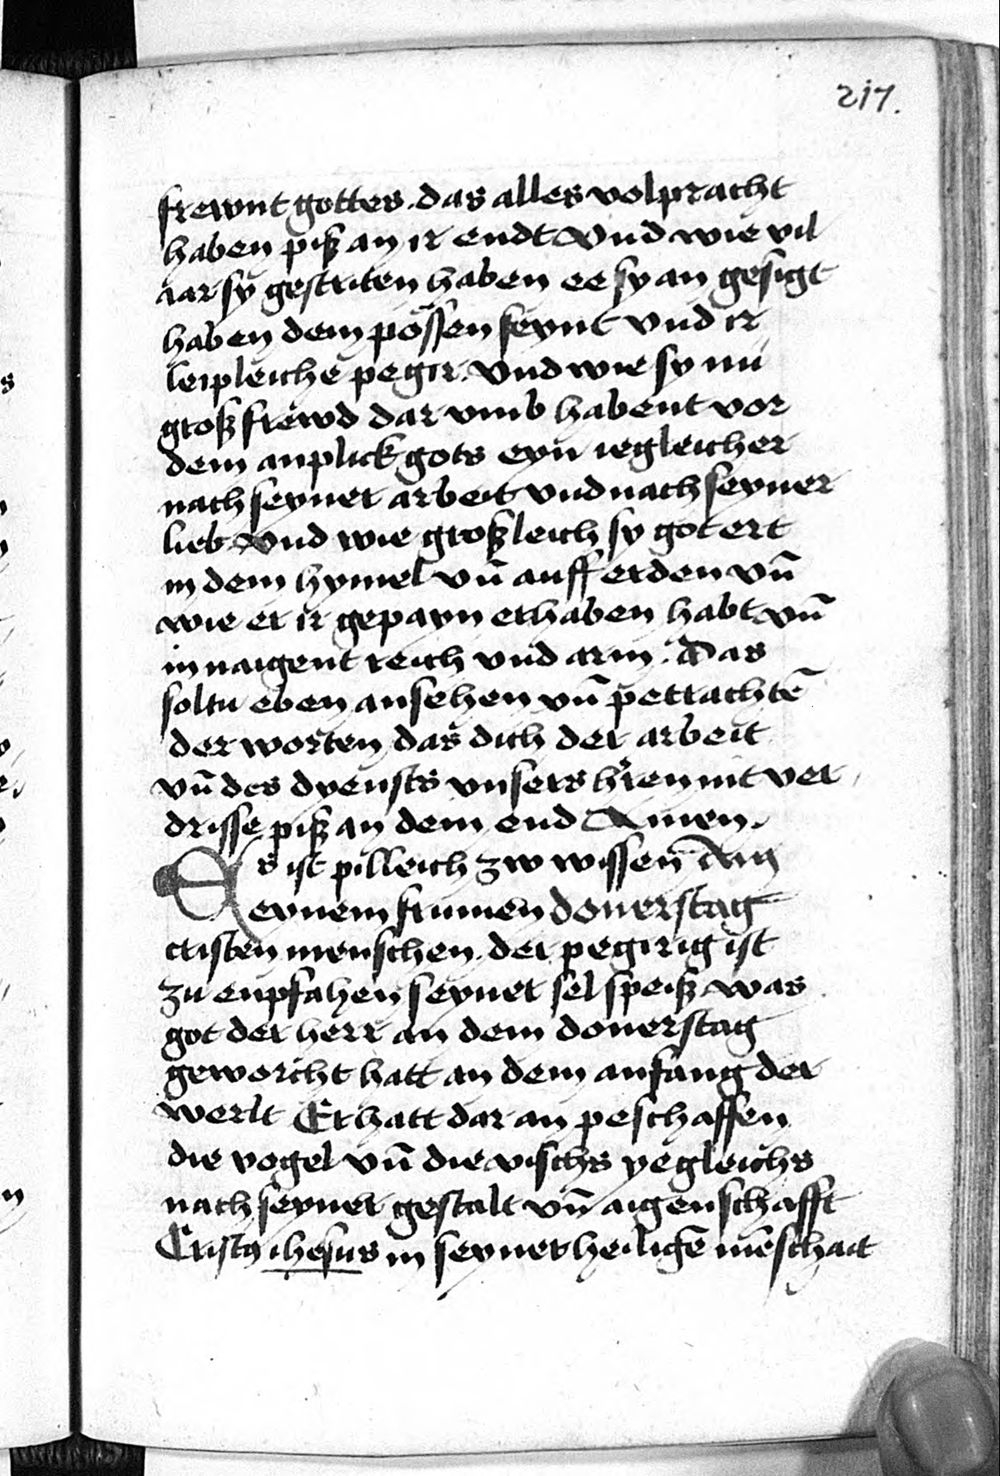 217.
frewnt gottes. das alles volpracht
haben piß an ir endt Vnd wie vil
iar sÿ gestriten haben ee sy an gesigt
haben dem pössen feynt vnd ir
leipleiche pegir. Vnd wie sy nu
groß frewd dar vmb habent vor
dem anplick gots eyn iegleicher
nach seyner arbeit vnd nach seyner
lieb Vnd wie großleich sy got ert
in dem hymel vn̄ auff erden vn̄
wie er ir gepayn erhaben habt vn̄
in naigent reich vnd arm. Das
soltu eben ansehen vn̄ petrachtē
der worten das dich der arbeit
vn̄ des dyensts vnsers hren nit ver
drisse piß an dem end Amen.
Es ist pilleich zw wissen Ain
eynem frumen donerstag
cristen menschen. der pegirig ist
zu enpfahen seyner sel speiß was
got der herr an dem donerstag
geworcht hatt an dem anfang der
werlt Er hatt dar an peschaffen
die vogel vn̄ die vischs yegleichs
nach seyner gestalt vn̄ aigenschafft
Cristus ihesus in seyner heiligē mēschait